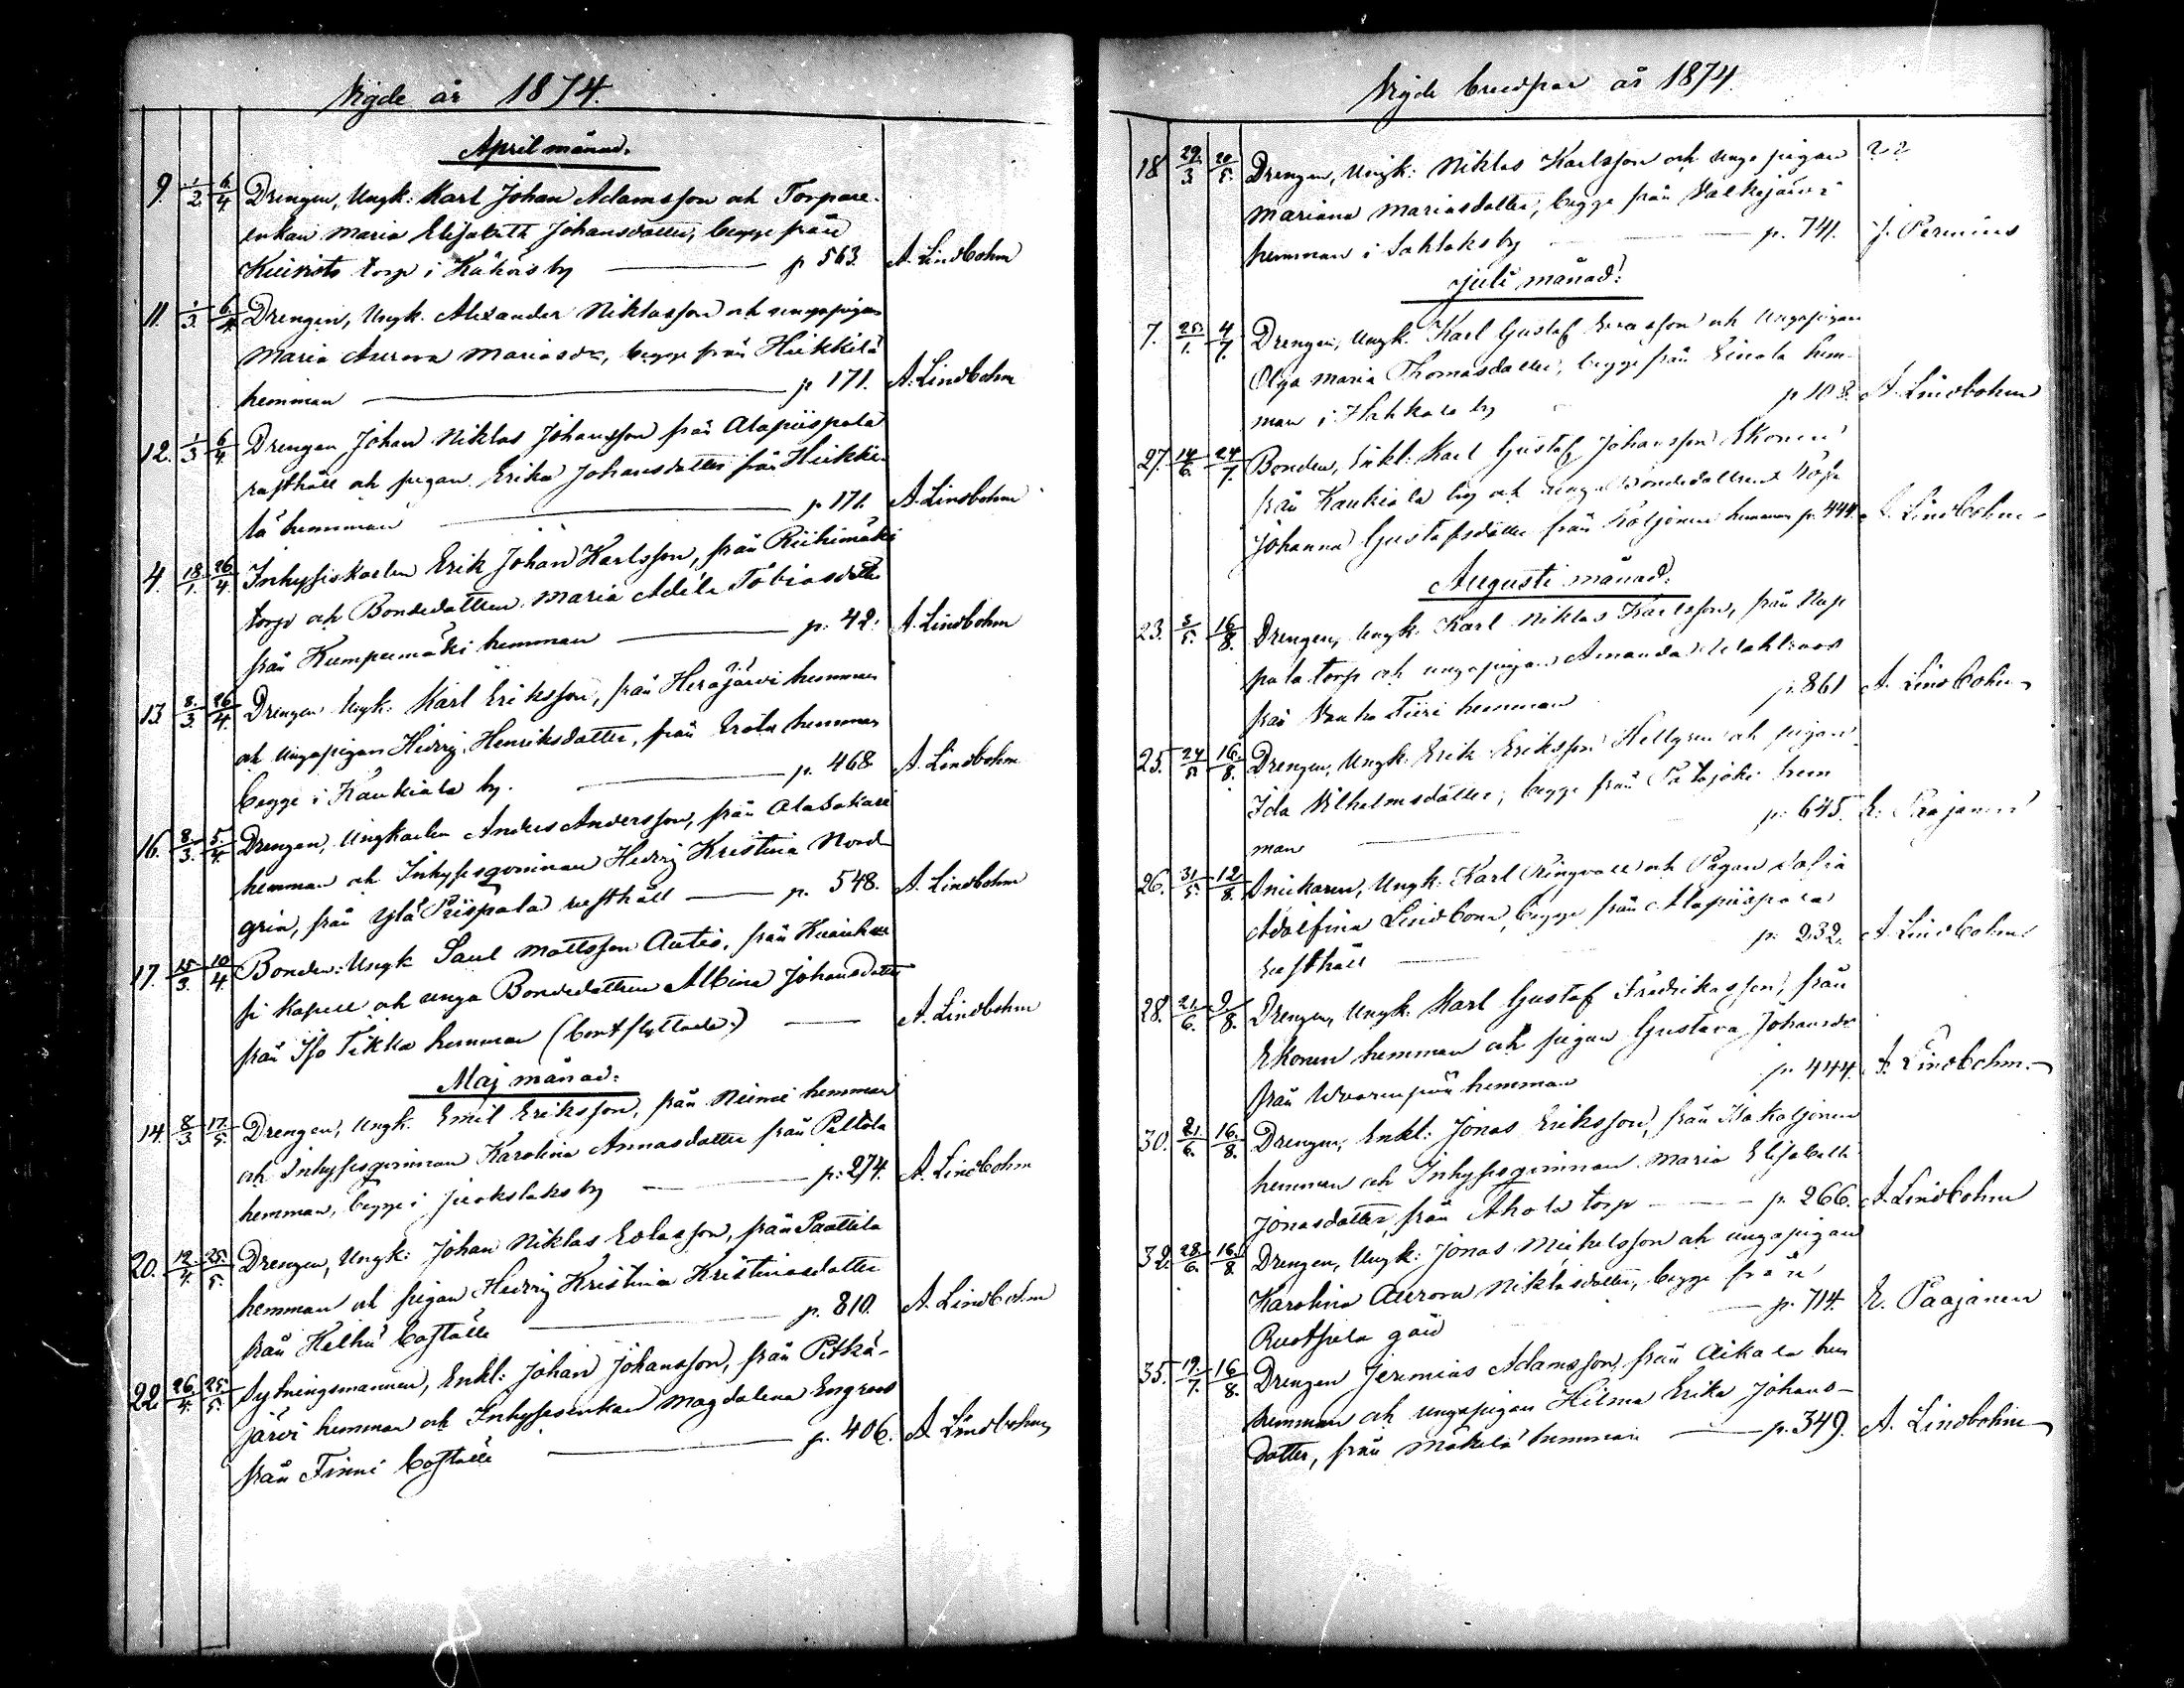 Vigde år 1874.
April månad.
9. 1/2. 6/4. Drengen, Ungk: Karl Johan Adamsson och Torpare-
enkan Maria Elisabeth Johansdotter, begge från
torp i by p 563. A. Lindbohm
11. 1/3. 6/4. Drengen, Ungk. Alexander Niklasson och ungapigan
Maria Aurora Mariasdr, begge från Heikkilä
hemman p 171. A. Lindbohm
12. 1/3 6/4. Drengen Johan Niklas Johansson från Alapiispala
rusthåll och pigan Erika Johansdotter från Heikki-
lä hemman p. 171. A. Lindbohm
4. 18/1. 26/4. Inhysiskarlen Erik Johan Karlsson, från Riihimäki
torp och Bondedottren Maria Adéle Tobiasdotter
från Kumpumäki hemman p: 42. A. Lindbohm
13. 8/3. 26/4. Drengen Ungk: Karl Eriksson, från Herajärvi hemman
och ungapigan Hedvig Henriksdotter, från Erola hemman
begge i Kaukiala by. p. 468 A. Lindbohm
16. 8/3. 5/4. Drengen, Ungkarlen Anders Andersson, från Ala
hemman och Inhysesqvinnan Hedvig Kristina Nord-
grén, från Ylä Piispala rusthåll p. 548. A. Lindbohm
17. 15/3. 10/4. Bonden: Ungk Saul Mattsson Autio, från
kapell och unga Bondedottren Albina Johansdotter
från Iso Tikka hemman (bortflyttade.) A. Lindbohm
Maj månad:
14. 8/3 17/5. Drengen, Ungk. Emil Eriksson, från Niemi hemman
och Inhysesqvinnan Karolina Annasdotter från Peltola
hemman, begge i by p: 274. A. Lindbohm
20. 12/4. 25/5. Drengen, Ungk: Johan Niklas Evasson, från Paattila
hemman och pigan Hedvig Kristina Kristinasdotter
från boställe p. 810. A. Lindbohm
22. 26/4. 25/5. Sytningsmannen, Enkl: Johan Johansson, från Pitkä-
järvi hemman och Inhysesenkan Magdalena Engroos
från Finni boställe p. 406. A. Lindbohm
Vigde brudpar år 1874.
18 29/3 20/5. Drengen, Ungk: Niklas Karlsson och unga pigan
Mariana Mariasdotter, begge från Valkjärvi
hemman i by p. 741. J. Perenius
Juli månad:
7. 25/1. 4/7. Drengen, Ungk. Karl Gustaf och Ungapigan
Olga Maria Thomasdotter, begge från Einola hem-
man i by p 108. A. Lindbohm
27. 14/6. 24/7. Bonden, Enkl: Karl Gustaf Johansson Ekonen
från Kaukiala by och unga Bondedottren
Johanna Gustafsdotter från Koljonen hemman p. 444. A. Lindbohm
Augusti månad:
23. 3/5. 16/8. Drengen, Ungk. Karl Niklas Karlsson, från
pala torp och ungapigan Amanda
från Vanha Fiiri hemman p. 861 A. Lindbohm
25. 24/5. 16/8. Drengen, Ungk: Erik Eriksson Hellgren och pigan
Ida Vilhelmsdotter, begge från Patajoki hem
man p: 645. E. Paajanen
26. 31/5. 12/8. Snickaren, Ungk: Karl Ringvall och Pigan Sofia
Adolfina Lindbom, begge från Alapiispala
rusthåll p: 232. A. Lindbohm
28. 21/6. 9/8. Drengen, Ungk. Karl Gustaf Fredriksson, från
Ekonen hemman och pigan Gustava Johansdr
från hemman p. 444. A. Lindbohm.
30. 21/6. 16/8. Drengen, Enkl: Jonas Eriksson, från Isokoljonen
hemman och Inhysesqvinnan Maria Elisabeth
Jonasdotter, från Ahola torp p. 266. A. Lindbohm
32. 28/6. 16/8. Drengen, Ungk: Jonas Mickelsson och ungapigan
Karolina Aurora Niklasdotter, begge från
Ruotsila gård p. 714. E. Paajanen
35. 19/7. 16/8. Drengen Jeremias Adamsson, från Aikala hem
hemman och ungapigan Hilma Erika Johans-
dotter, från Mäkelä hemman p. 349. A. Lindbohm